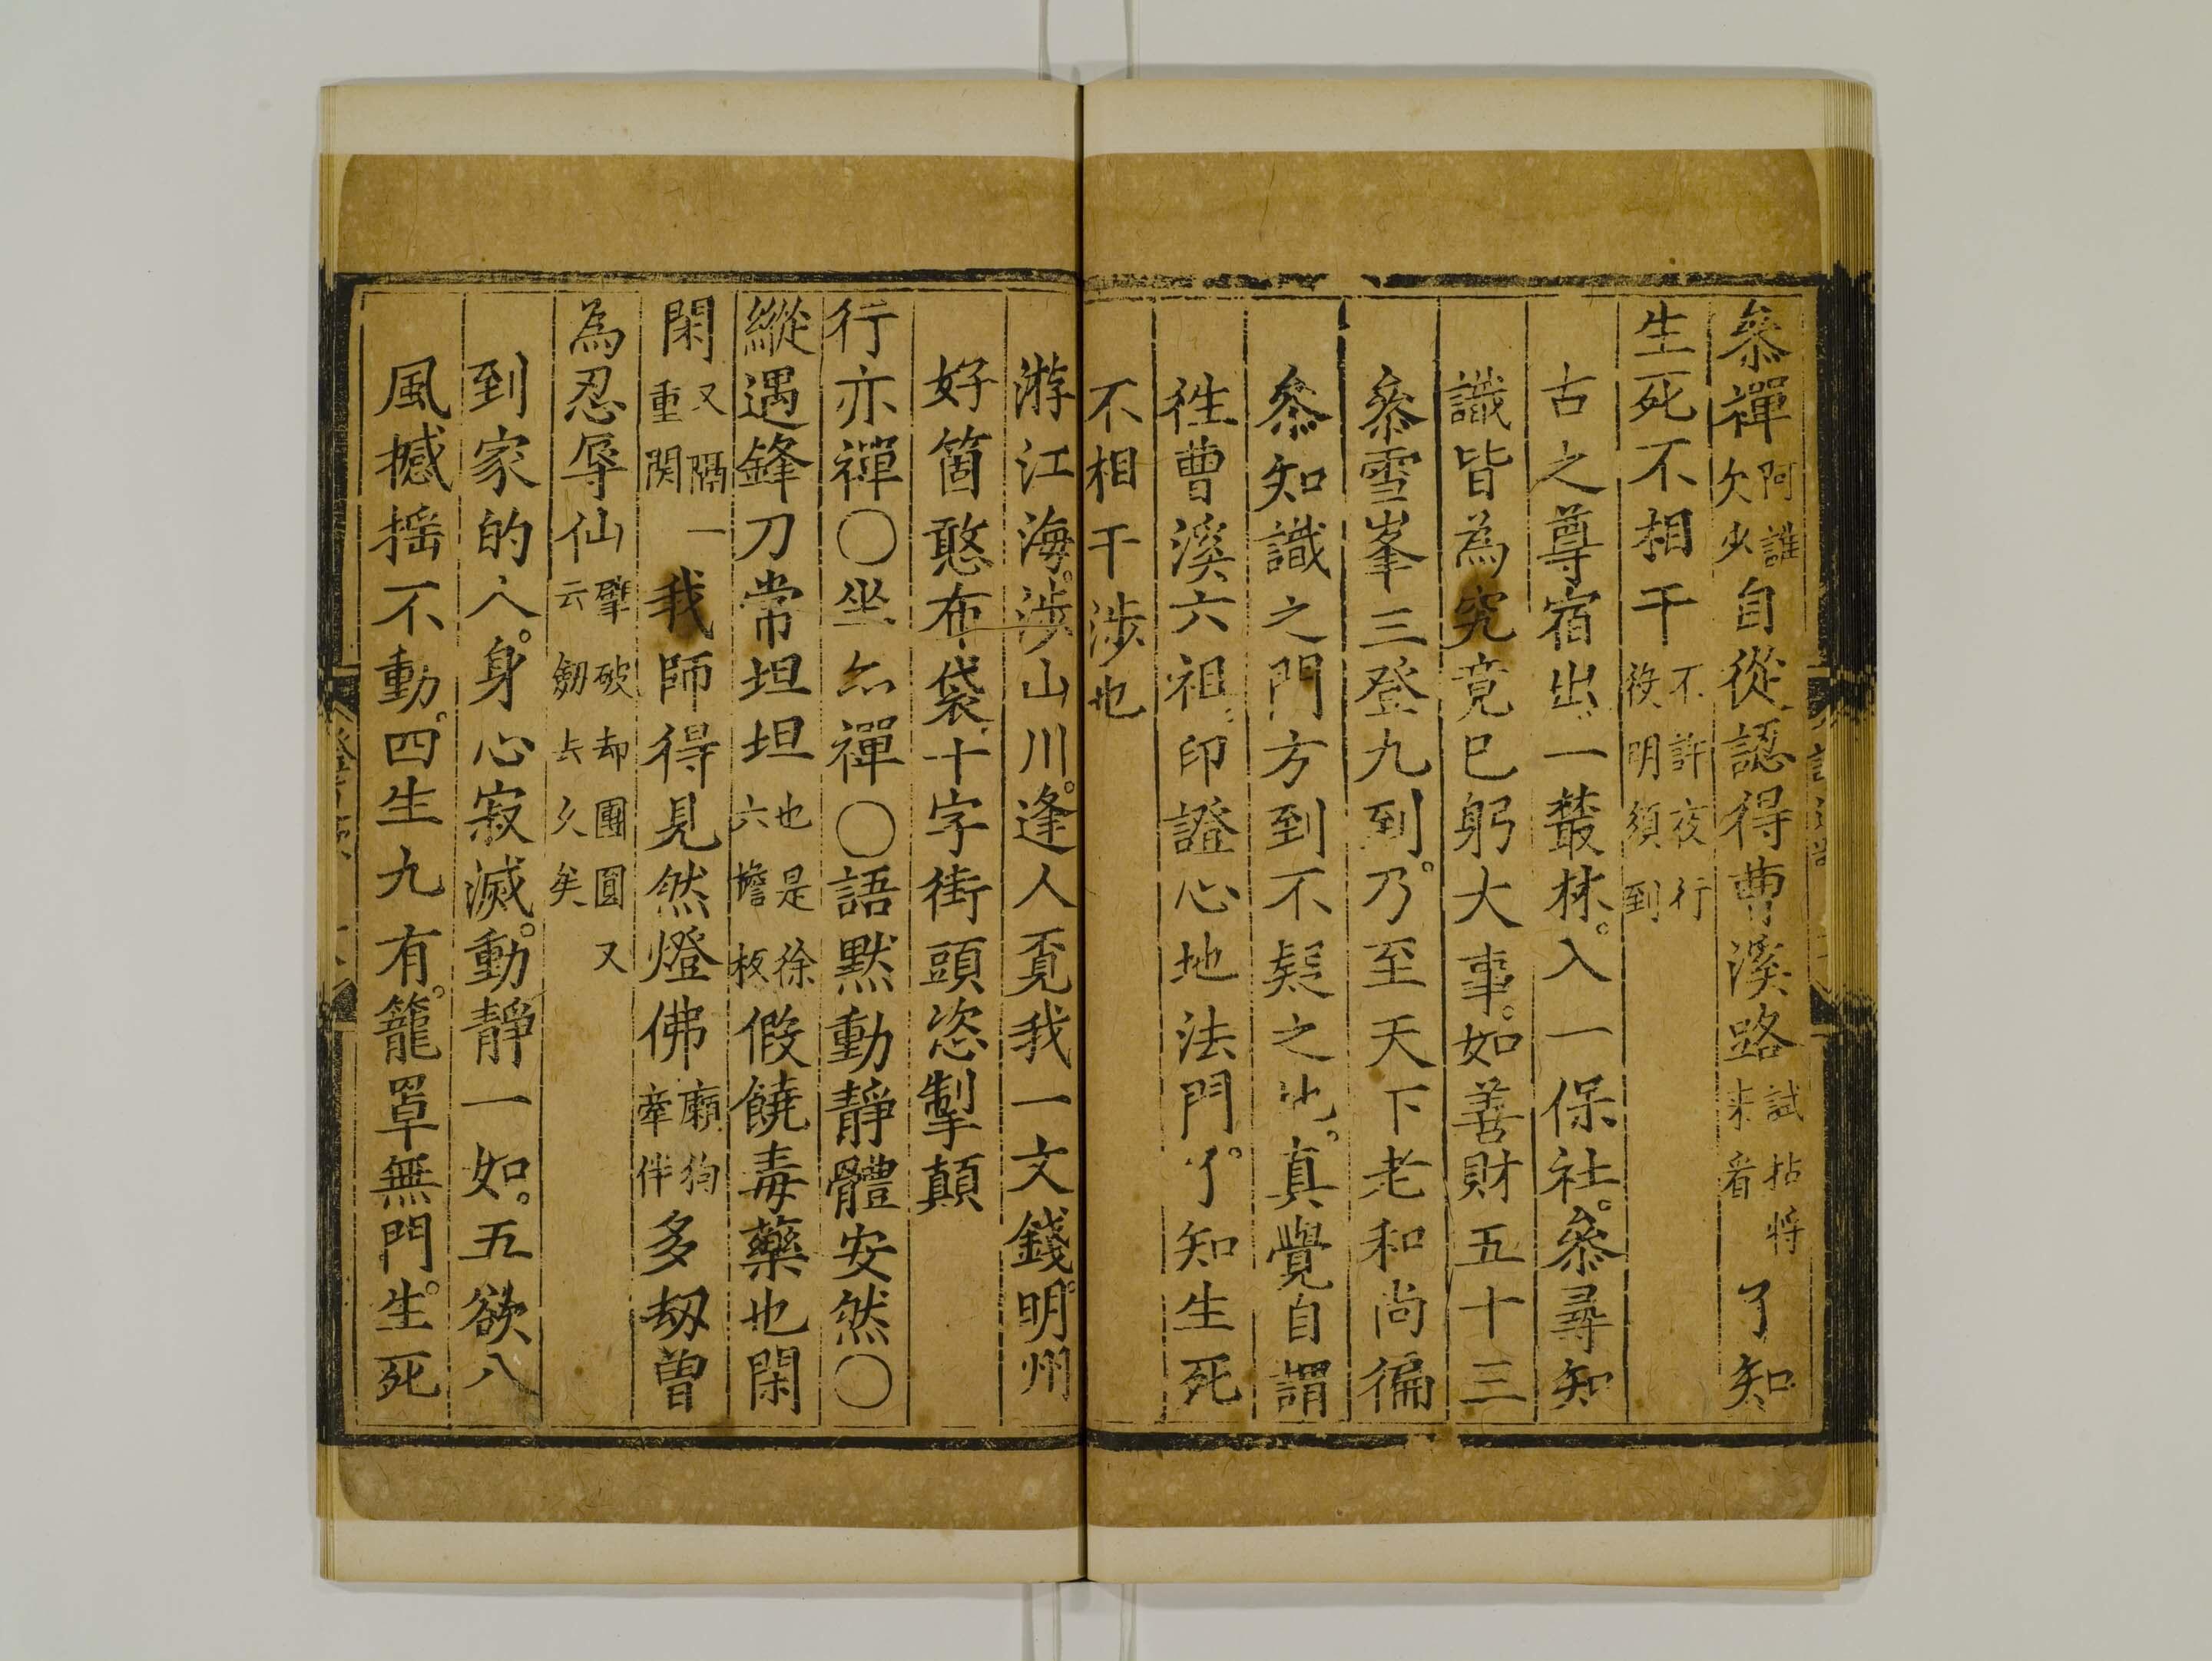 叅禪阿誰欠少自從認得曹溪路試拈将来看了知
生死不相干不許夜行投明須到
古之尊宿出一叢林。入一保社。叅尋知
識皆為究竟巳躬大事。如善財五十三
叅雪峯三登九到。乃至天下老和尚徧
叅知識之門方到不疑之地。真覺自謂
徃曹溪六祖印證心地法門。了知生死
不相干涉也
游江海。涉山川。逢人覔我一文錢。明州
好箇憨布袋十字街頭恣掣顛
行亦禪〇坐亦禪〇語默動靜體安然〇
縱遇鋒刀常坦坦也是徐六擔板假饒毒藥也閑
閑又隔一重関我師得見然燈佛廟狗牽伴多刼曾
為忍辱仙擘破却團圓又云劒去久矣
到家的人。身心寂滅。動靜一如。五欲八
風撼揺不動。四生九有。籠罩無門。生死